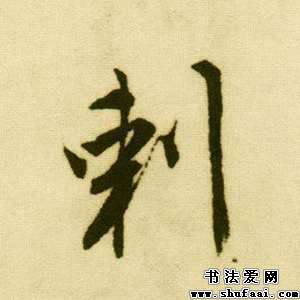 刺
书法爱网
www.shufaai.com